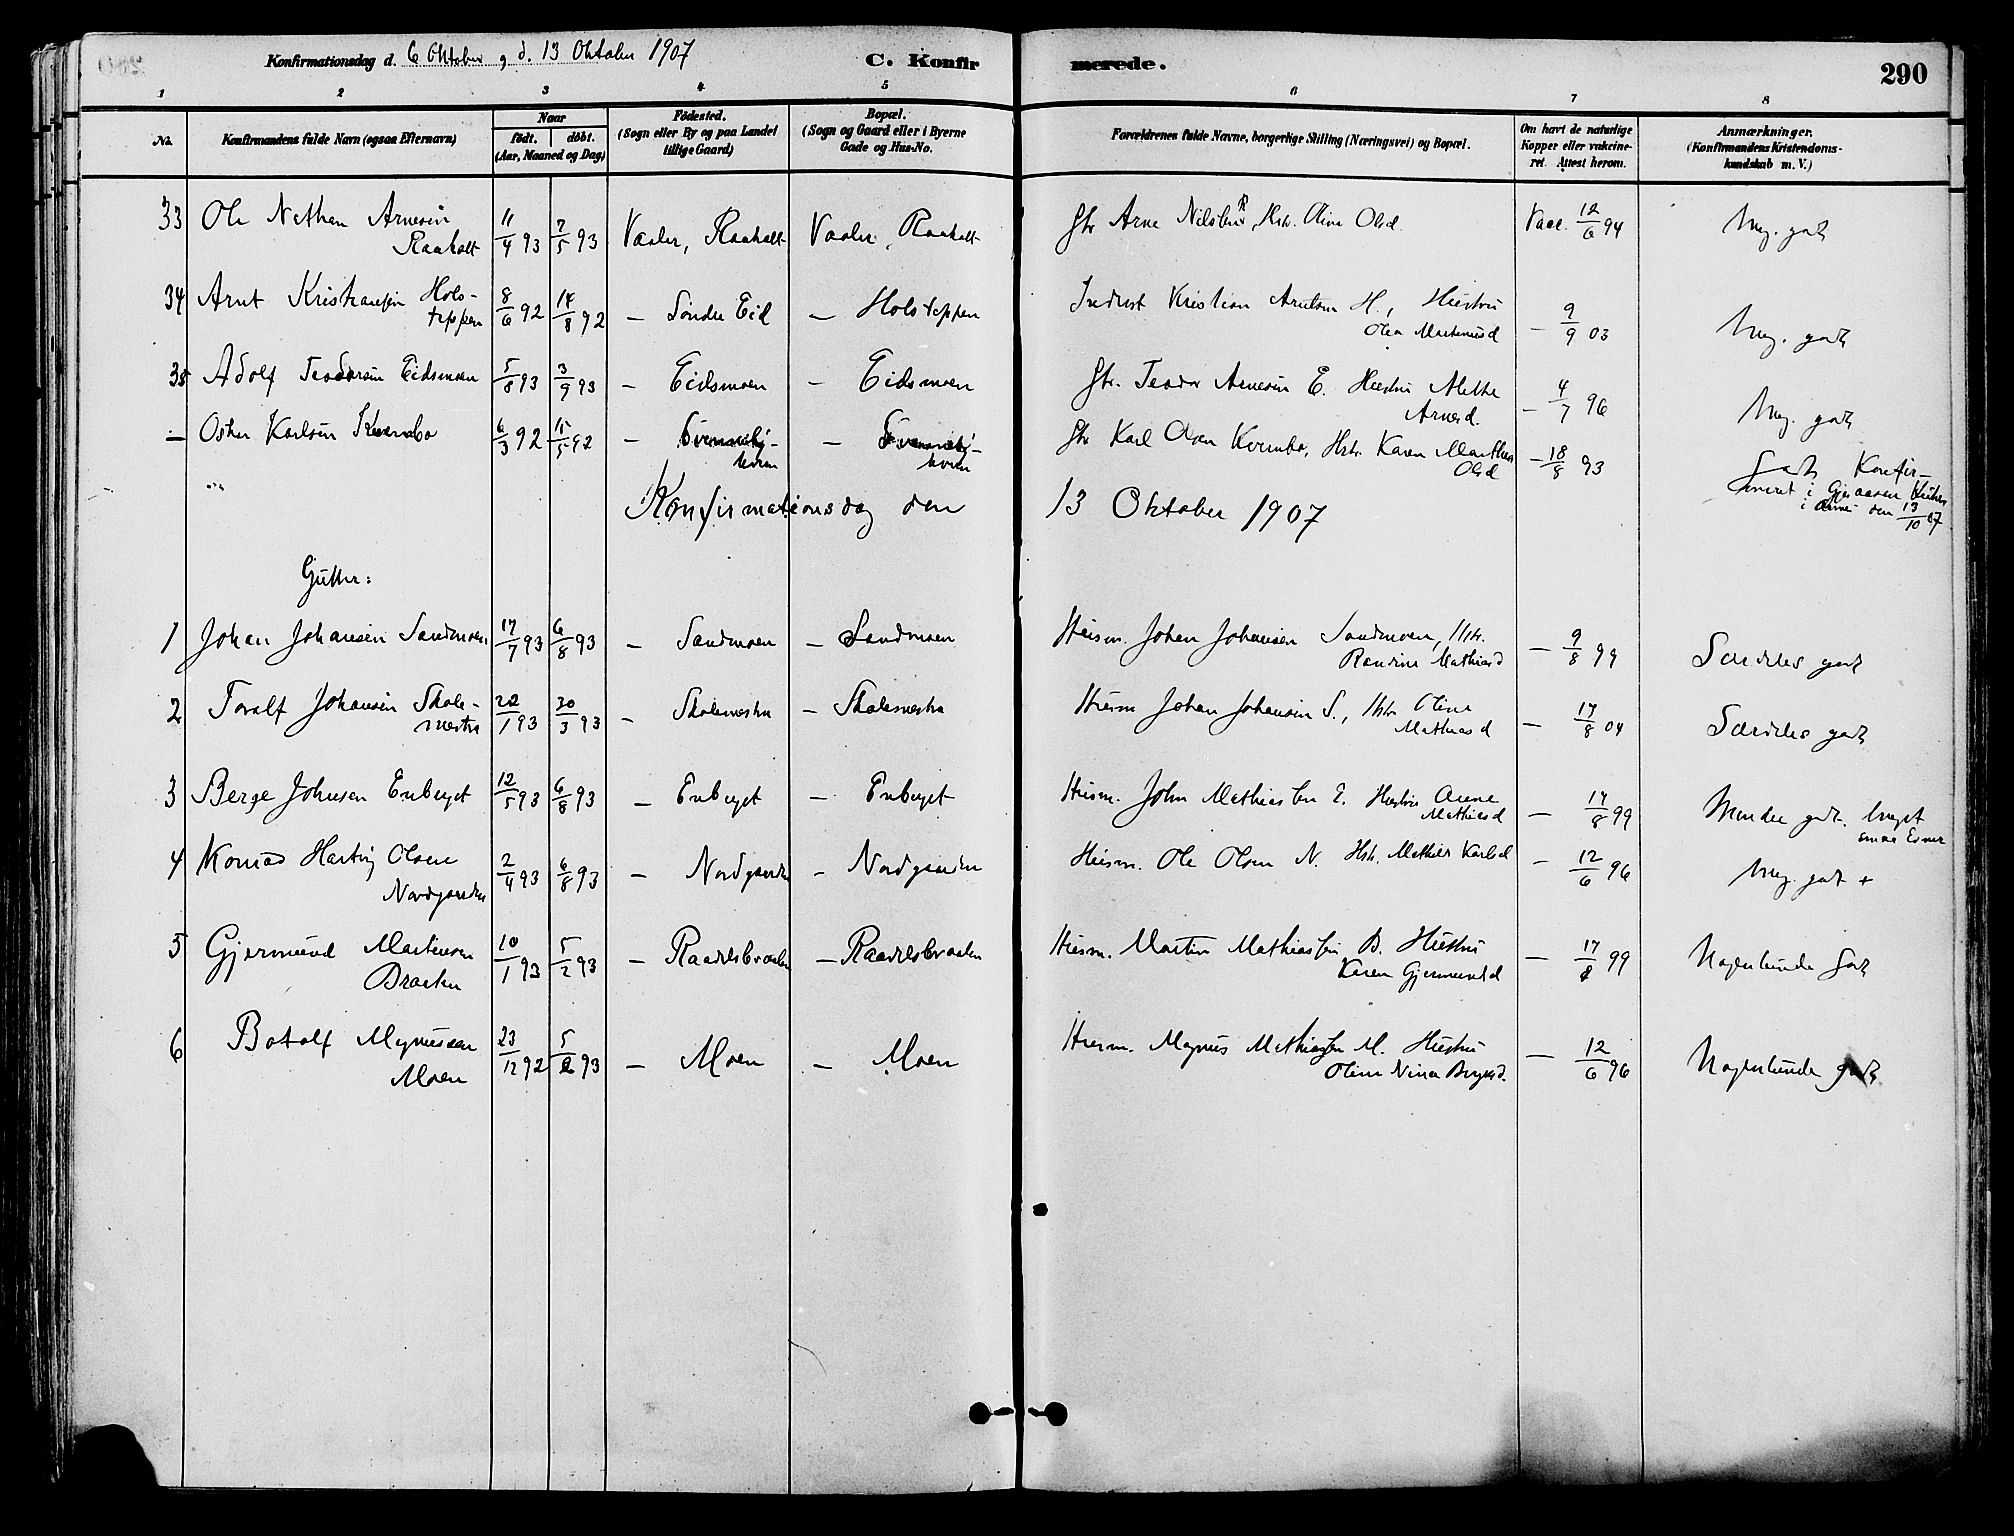 Konfirmationsdag d. 6 Oktober og d. 13 Oktober 1907 C. Konfirmerede. 290
1 2 3 4 5 6 7 8
No. Konfirmandens fulde Navn (ogsaa Efternavn) Naar født. døbt. (Aar, Maaned og Dag) Fødested. (Sogn eller By og paa Landet tillige Gaard) Bopæl. (Sogn og Gaard eller i Byerne Gade og Hus-No. Forældrenes fulde Navne, borgerlige Stilling (Næringsvei) og Bopæl. Om havt de naturlige Kopper eller vakcineret. Attest herom. Anmærkninger. (Konfirmandens Kristendomskundskab m. V.)
33 Ole Nathan Arnesen Raaholt 11/4 93 7/5 93 Vaaler, Raaholt Vaaler, Raaholt Gbr. Arne Nilsen R, Hstr. Oline Olsd. Vacc. 12/6 94 Meg. godt
34 Arnt Kristiansen Holsteppen 8/6 92 14/8 92 — Søndre Eid — Holsteppen Inderst Kristian Arntsen H., Hustru Olea Martinusd — 9/9 03 Meg. godt
35 Adolf Teodorsen Eidsmoen 5/8 93 3/9 93 — Eidsmoen — Eidsmoen Gbr. Teodor Arnesen E. Hustru Mathea Arnesd. — 4/7 96 Meg. godt
— Oskar Karlsen Kvernbo 6/3 92 15/5 92 — — Gbr Karl Olsen Kvernbo, Hstr. Karen Marthea Olsd — 18/8 93 Godt Konfirmeret i Gjesaasen Kirke i den 13/10 07
Konfirmationsdag den 13 Oktober 1907
Gutter:
1 Johan Johansen Sandmoen 17/7 93 6/8 93 — Sandmoen — Sandmoen Husm. Johan Johansen Sandmoen, Hstr. Randine Mathiasd — 9/8 99 Særdeles godt
2 Toralf Johansen Skolemestra 22/1 93 30/3 93 — Skolemestra — Skolemestra Husm Johan Johansen S., Hstr Oline Mathiasd — 17/8 04 Særdeles godt
3 Berge Johnsen Enberget 12/5 93 6/8 93 — Enberget — Enberget Husm. John Mathiassen E. Hustru Anne Mathiasd — 17/8 99 Mindre godt. meget smaa Evner
4 Konrad Hartvig Olsen Nordgaarden 2/4 93 6/8 93 — Nordgaarden — Nordgaarden Husm. Ole Olsen N. Hstr. Mathilde Karlsd — 12/6 96 Meg. godt +
5 Gjermund Martinsen Braaten 10/1 93 5/2 93 — Raadelsbraaten — Raadelsbraaten Husm. Martin Mathiassen B. Hustru Karen Gjermundsd — 17/8 99 Nogenlunde godt
6 Botolf Magnussen Moen 23/12 92 5/2 93 — Moen — Moen Husm. Magnus Mathiassen M. Hustru Oline Nina — 12/6 96 Nogenlunde godt